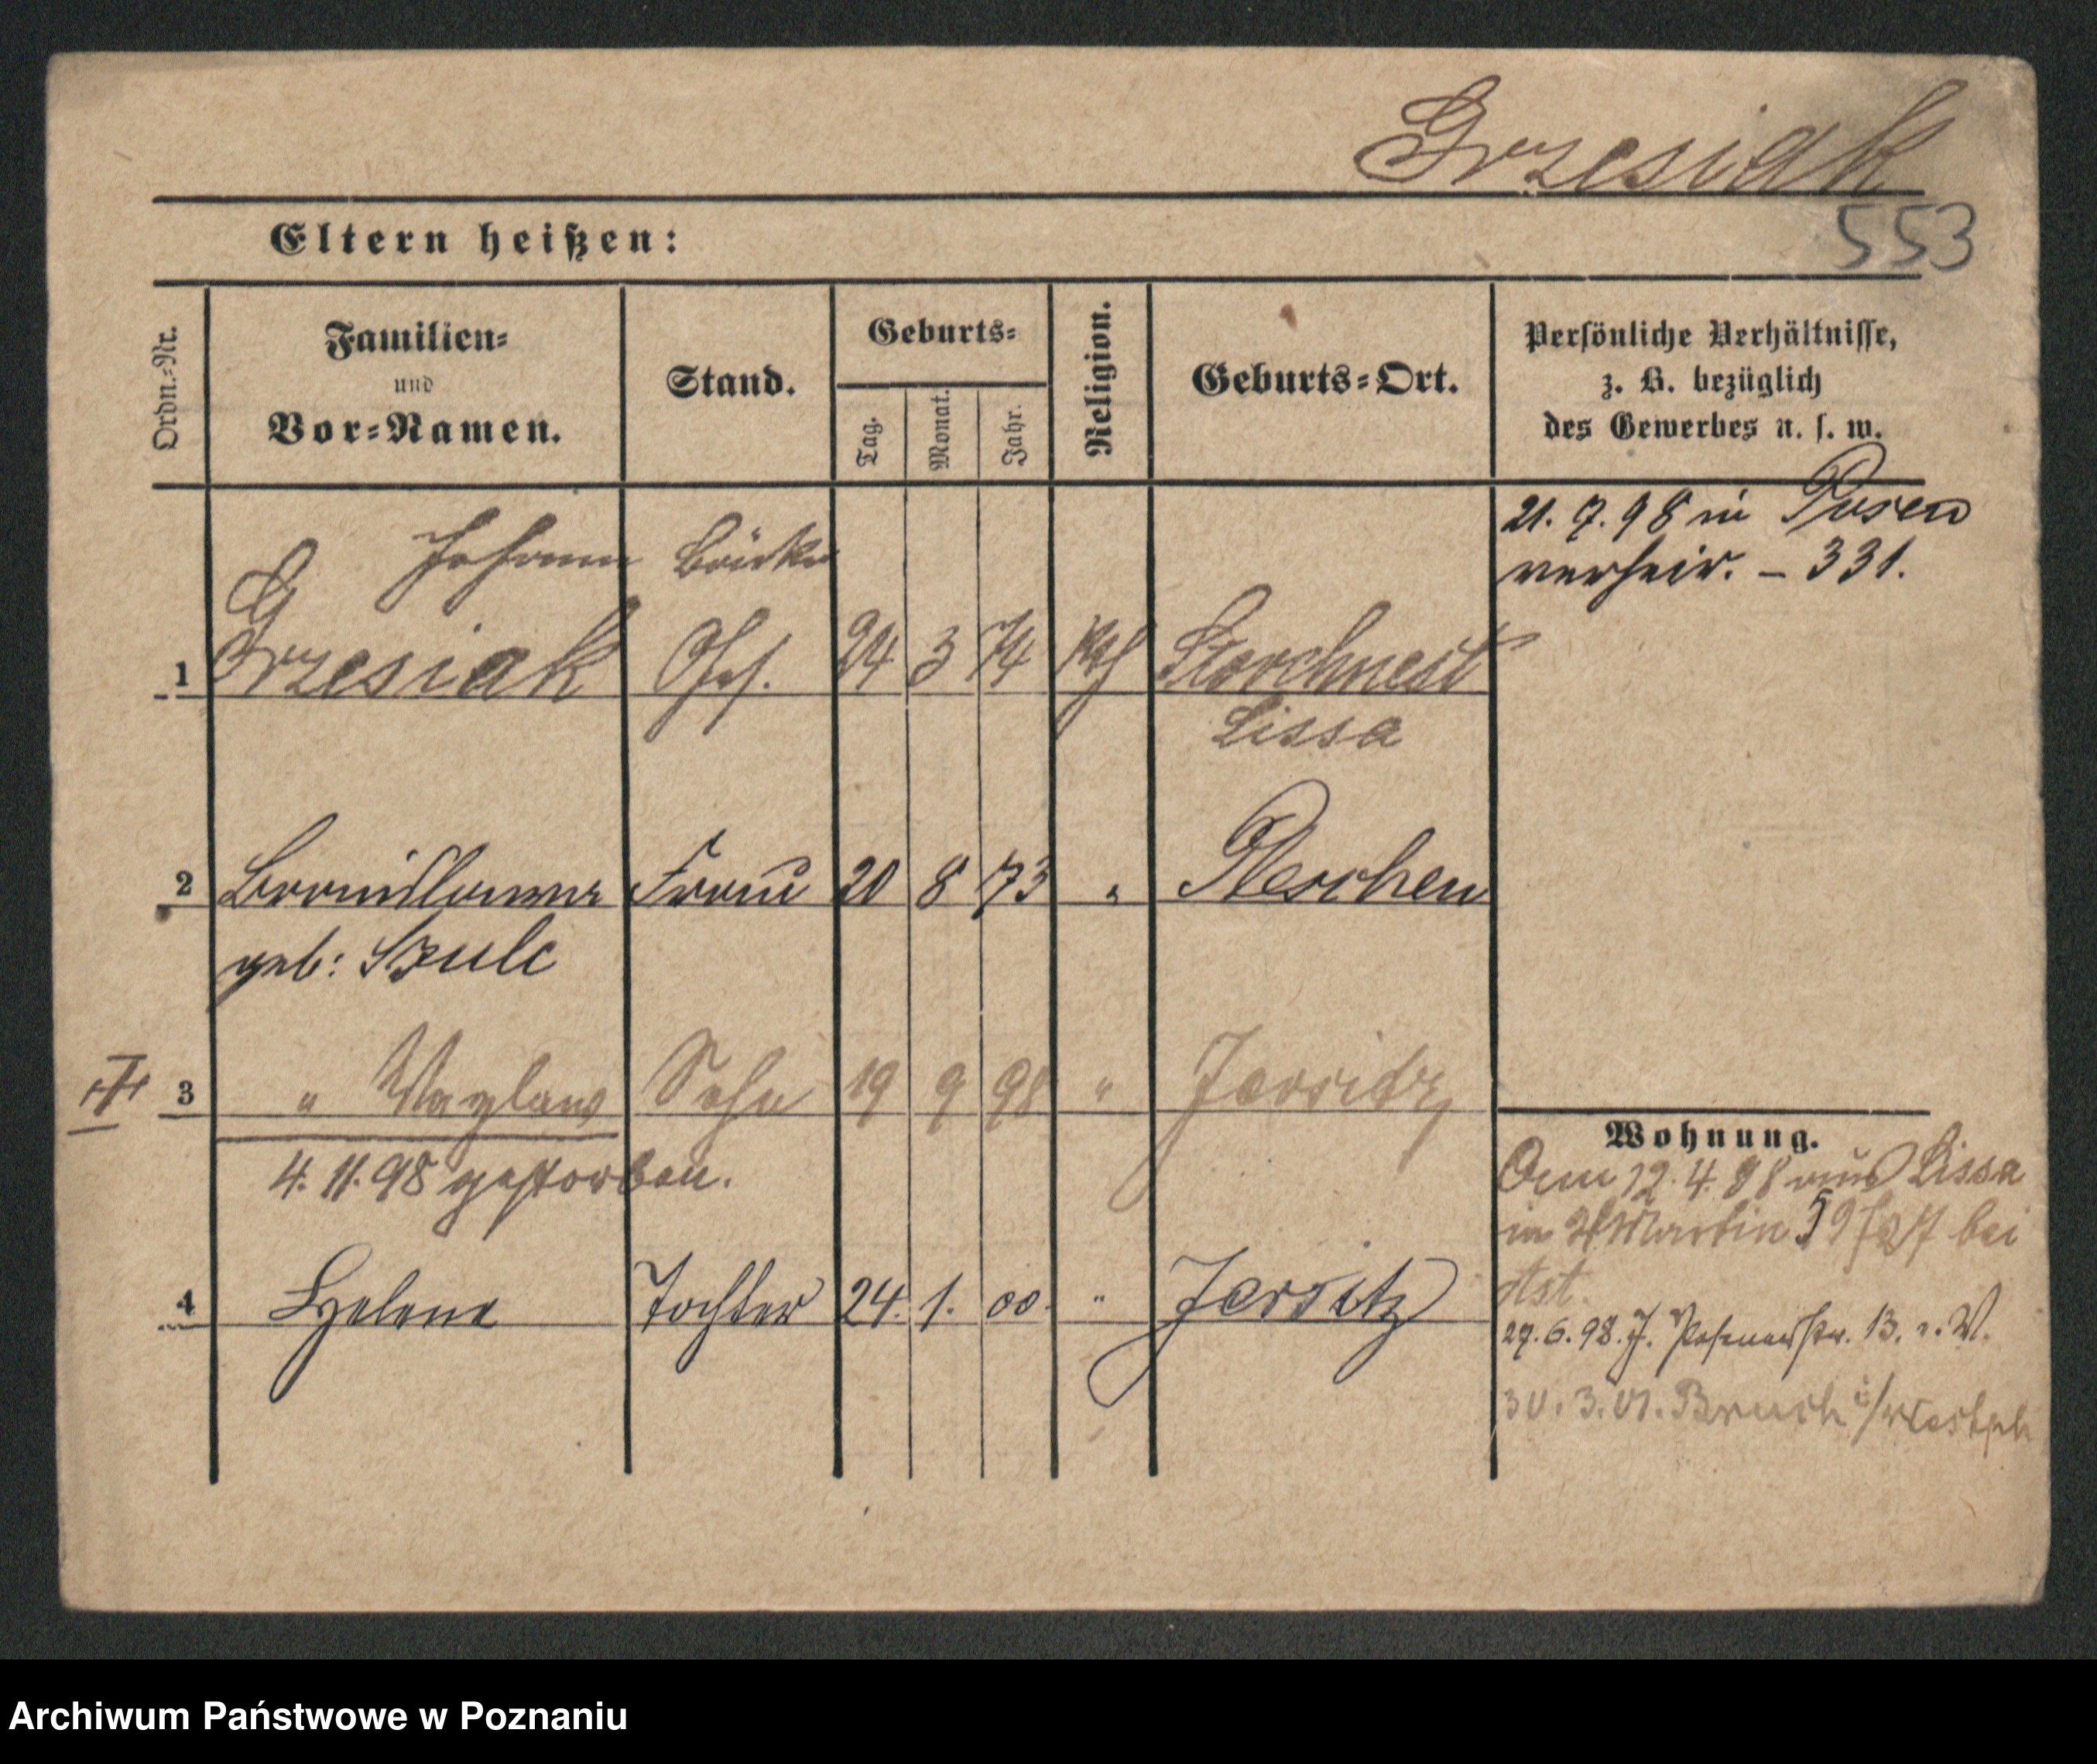 Grzesiak
553
Eltern heißen:
Ordn.-Nr.
Familien-
und
Vor-Namen.
Stand.
Geburts-
Tag.
Monat.
Jahr.
Religion.
Geburts-Ort.
Persönliche Verhältnisse,
z. B. bezüglich
des Gewerbes u. s. w.
21. 7. 98 in Posen
verheir. – 331.
Johann
1 Grzesiak Ghf. 24 3 74 kth Storchnest
Lissa
2 Bronislawa Frau 20 8 73 " Pleschen
geb: Szulc
3 " Wazlaw Sohn 19 9 98 " Jersitz
4. 11. 98 gestorben.
4 Helene Tochter 24. 1. 00. " Jersitz
Wohnung.
Am 12. 4. 98 aus Lissa
in St Martin 59 bei
29. 6. 98. J. Posenerstr. 13. v. W.
30. 3. 01. Bruch i/Westph
Archiwum Państwowe w Poznaniu